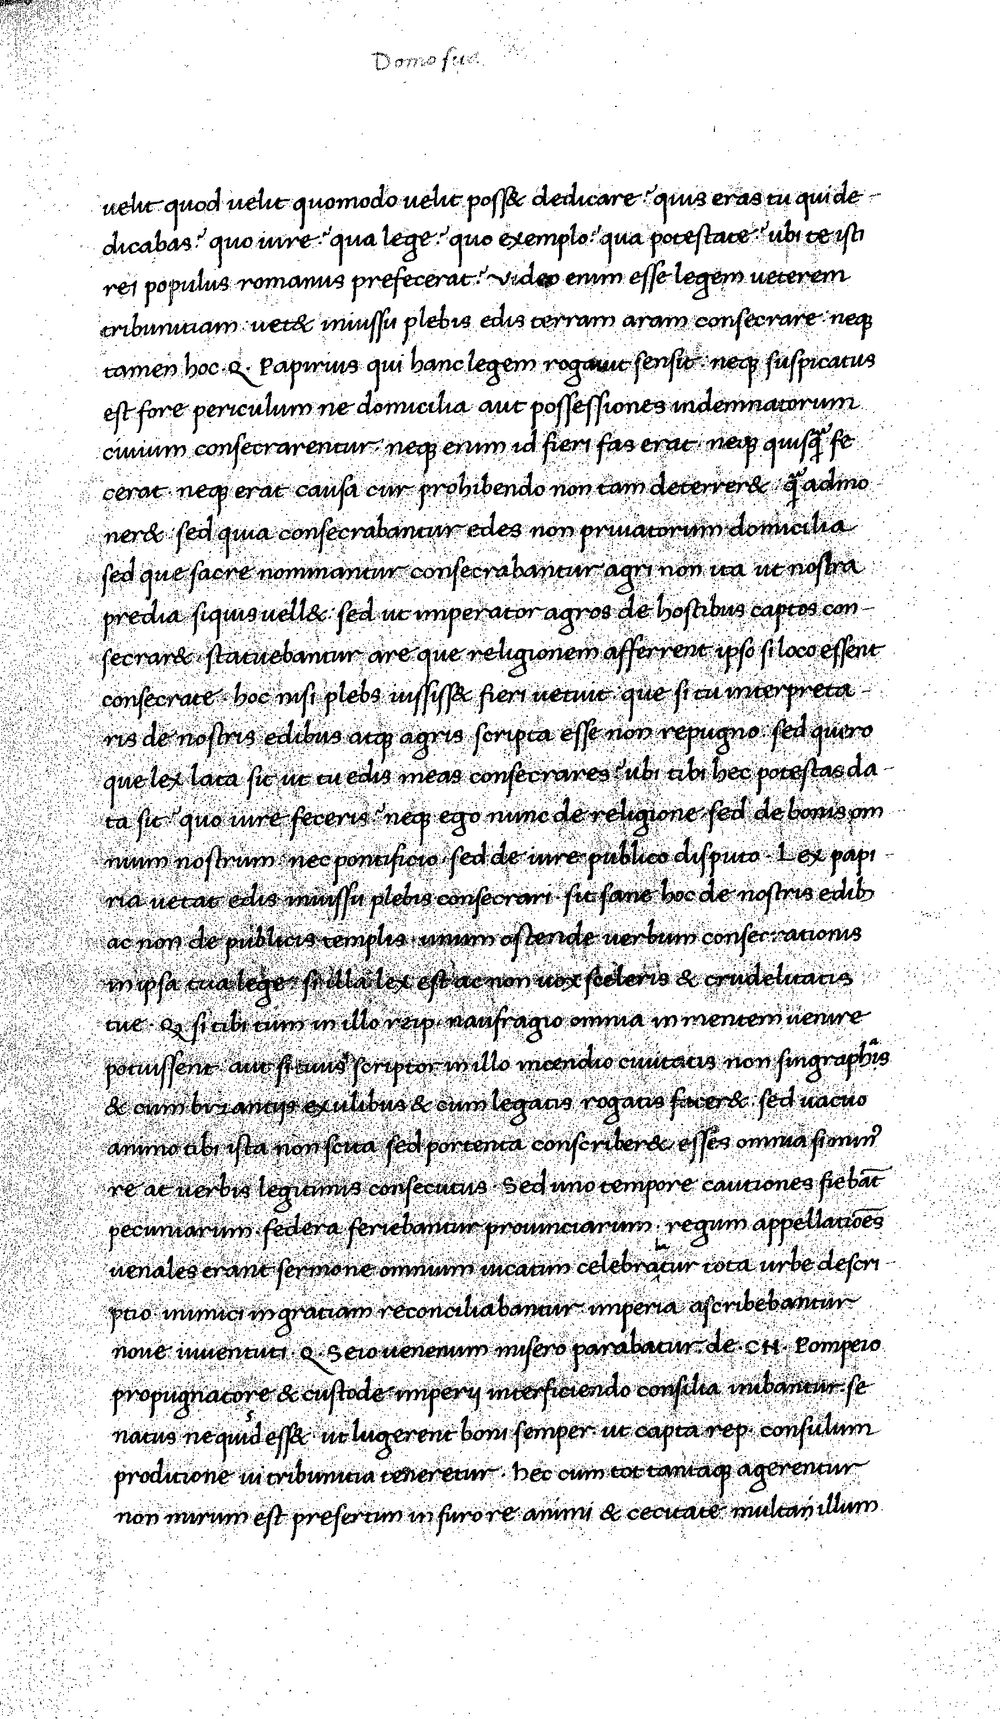 Domo sua
uelit quod uelit quomodo uelit poss& dedicare? quis eras tu qui de-
dicabas? quo iure? qua lege? quo exemplo? qua potestate? ubi te isti
rei populus romanus prefecerat? Video enim esse legem ueterem
tribuniciam uet& iniussu plebis edis terram aram consecrare neqꝫ
tamen hoc .Q. Papirius qui hanc legem rogauit sensit. neqꝫ suspicatus
est fore periculum ne domicilia aut possessiones indemnatorum
ciuium consecrarentur. neqꝫ enim id fieri fas erat. neqꝫ quisq̃ fe
cerat. neqꝫ erat causa cur prohibendo non tam deterrer& q̃ admo
ner& sed quia consecrabantur edes non priuatorum domicilia
sed que sacre nominantur consecrabantur agri non ita ut nostra
predia siquis uell& sed ut imperator agros de hostibus captos con-
secrar& statuebantur are que religionem afferrent ipso si loco essent
consecrate. hoc nisi plebs iussiss& fieri uetuit. que si tu interpreta-
ris de nostris edibus atqꝫ agris scripta esse non repugno. sed quero
que lex lata sit ut tu edis meas consecrares? ubi tibi hec potestas da-
ta sit? quo iure feceris? neqꝫ ego nunc de religione sed de bonis om
nium nostrum nec pontificio sed de iure publico disputo. Lex papi-
ria uetat edis iniussu plebis consecrari. sit sane hoc de nostris edibꝫ
ac non de publicis templis. unum ostende uerbum consecrationis
in ipsa tua lege. si illa lex est ac non uox sceleris & crudelitatis
tue. Qꝫ si tibi tum in illo reip. naufragio omnia in mentem uenire
potuissent. aut si tuus scriptor in illo incendio ciuitatis non singraphãs
& cum bizantijs exulibus & cum legatis rogatis facer& sed uacuo
animo tibi ista non scita sed portenta conscriber& esses omnia si minꝰ
re at uerbis legitimis consecutus. Sed uno tempore cautiones fiebãt
pecuniarum federa feriebantur prouinciarum. regum appellatiões
uenales erant sermone omnium uicatim celebratur tota urbe descri-
ptio inimici in gratiam reconciliabantur imperia ascribebantur
noue iuuentuti. Q. Seio uenenum misero parabatur. de .CN. Pompeio
propugnatore & custode imperij interficiendo consilia inibantur. se
natus nequid ess& ut lugerent boni semper. ut capta rep. consulum
proditione ui tribunitia teneretur. hec cum tot tantaqꝫ agerentur
non mirum est presertim in furore animi & cecitate multa illum